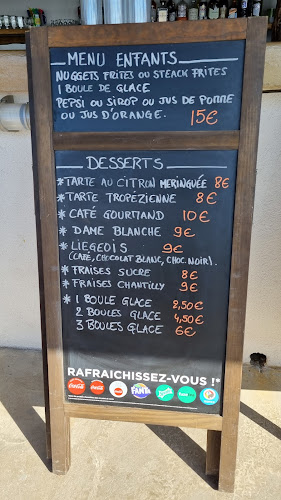 MENU ENFANTS
NUGGETS FRITES OU STEACK FRITES
1 BOULE DE GLACE
PEPSI OU SIROP OU JUS DE POMME
OU JUS D'ORANGE. 15€
DESSERTS
*TARTE AU CITRON MERINGUÉE 8€
*TARTE TROPÉZIENNE 8€
*CAFÉ GOURMAND 10€
*DAME BLANCHE 9€
*LIEGEOIS 9€
(CAFÉ, CHOCOLAT BLANC, CHOC.NOIR).
*FRAISES SUCRE 8€
*FRAISES CHANTILLY 9€
*1 BOULE GLACE 2,50€
2 BOULES GLACE 4,50€
3 BOULES GLACE 6€
RAFRAICHISSEZ-VOUS !*